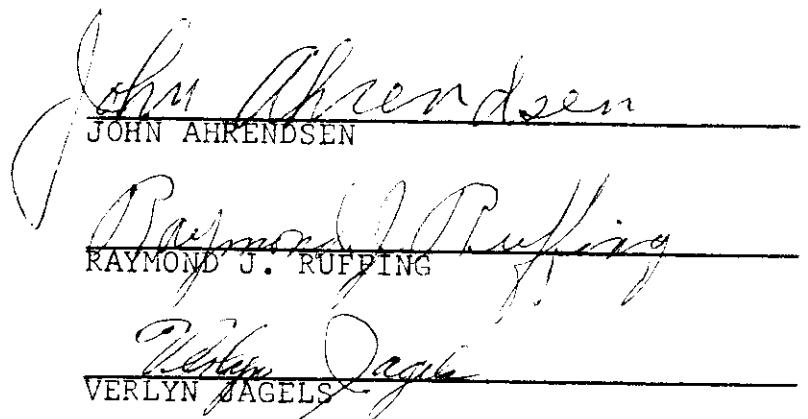 John Ahrendsen
JOHN AHRENDSEN
Raymond J. Ruffing
RAYMOND J. RUFFING
Verlyn Jagels
VERLYN JAGELS